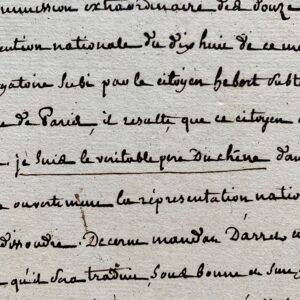 mmission extraordinaire des douze
ention nationale du dix huit de ce mo
gatoire subi par le citoyen hebert subst
e de Paris, il resulte, que ce citoyen a
je suis le veritable pere Duchêne dan
e ouvertement la réprésentation natio
dissoudre. Decerne mandat D'arret co
qu'il sera traduit, sous bonne et sure